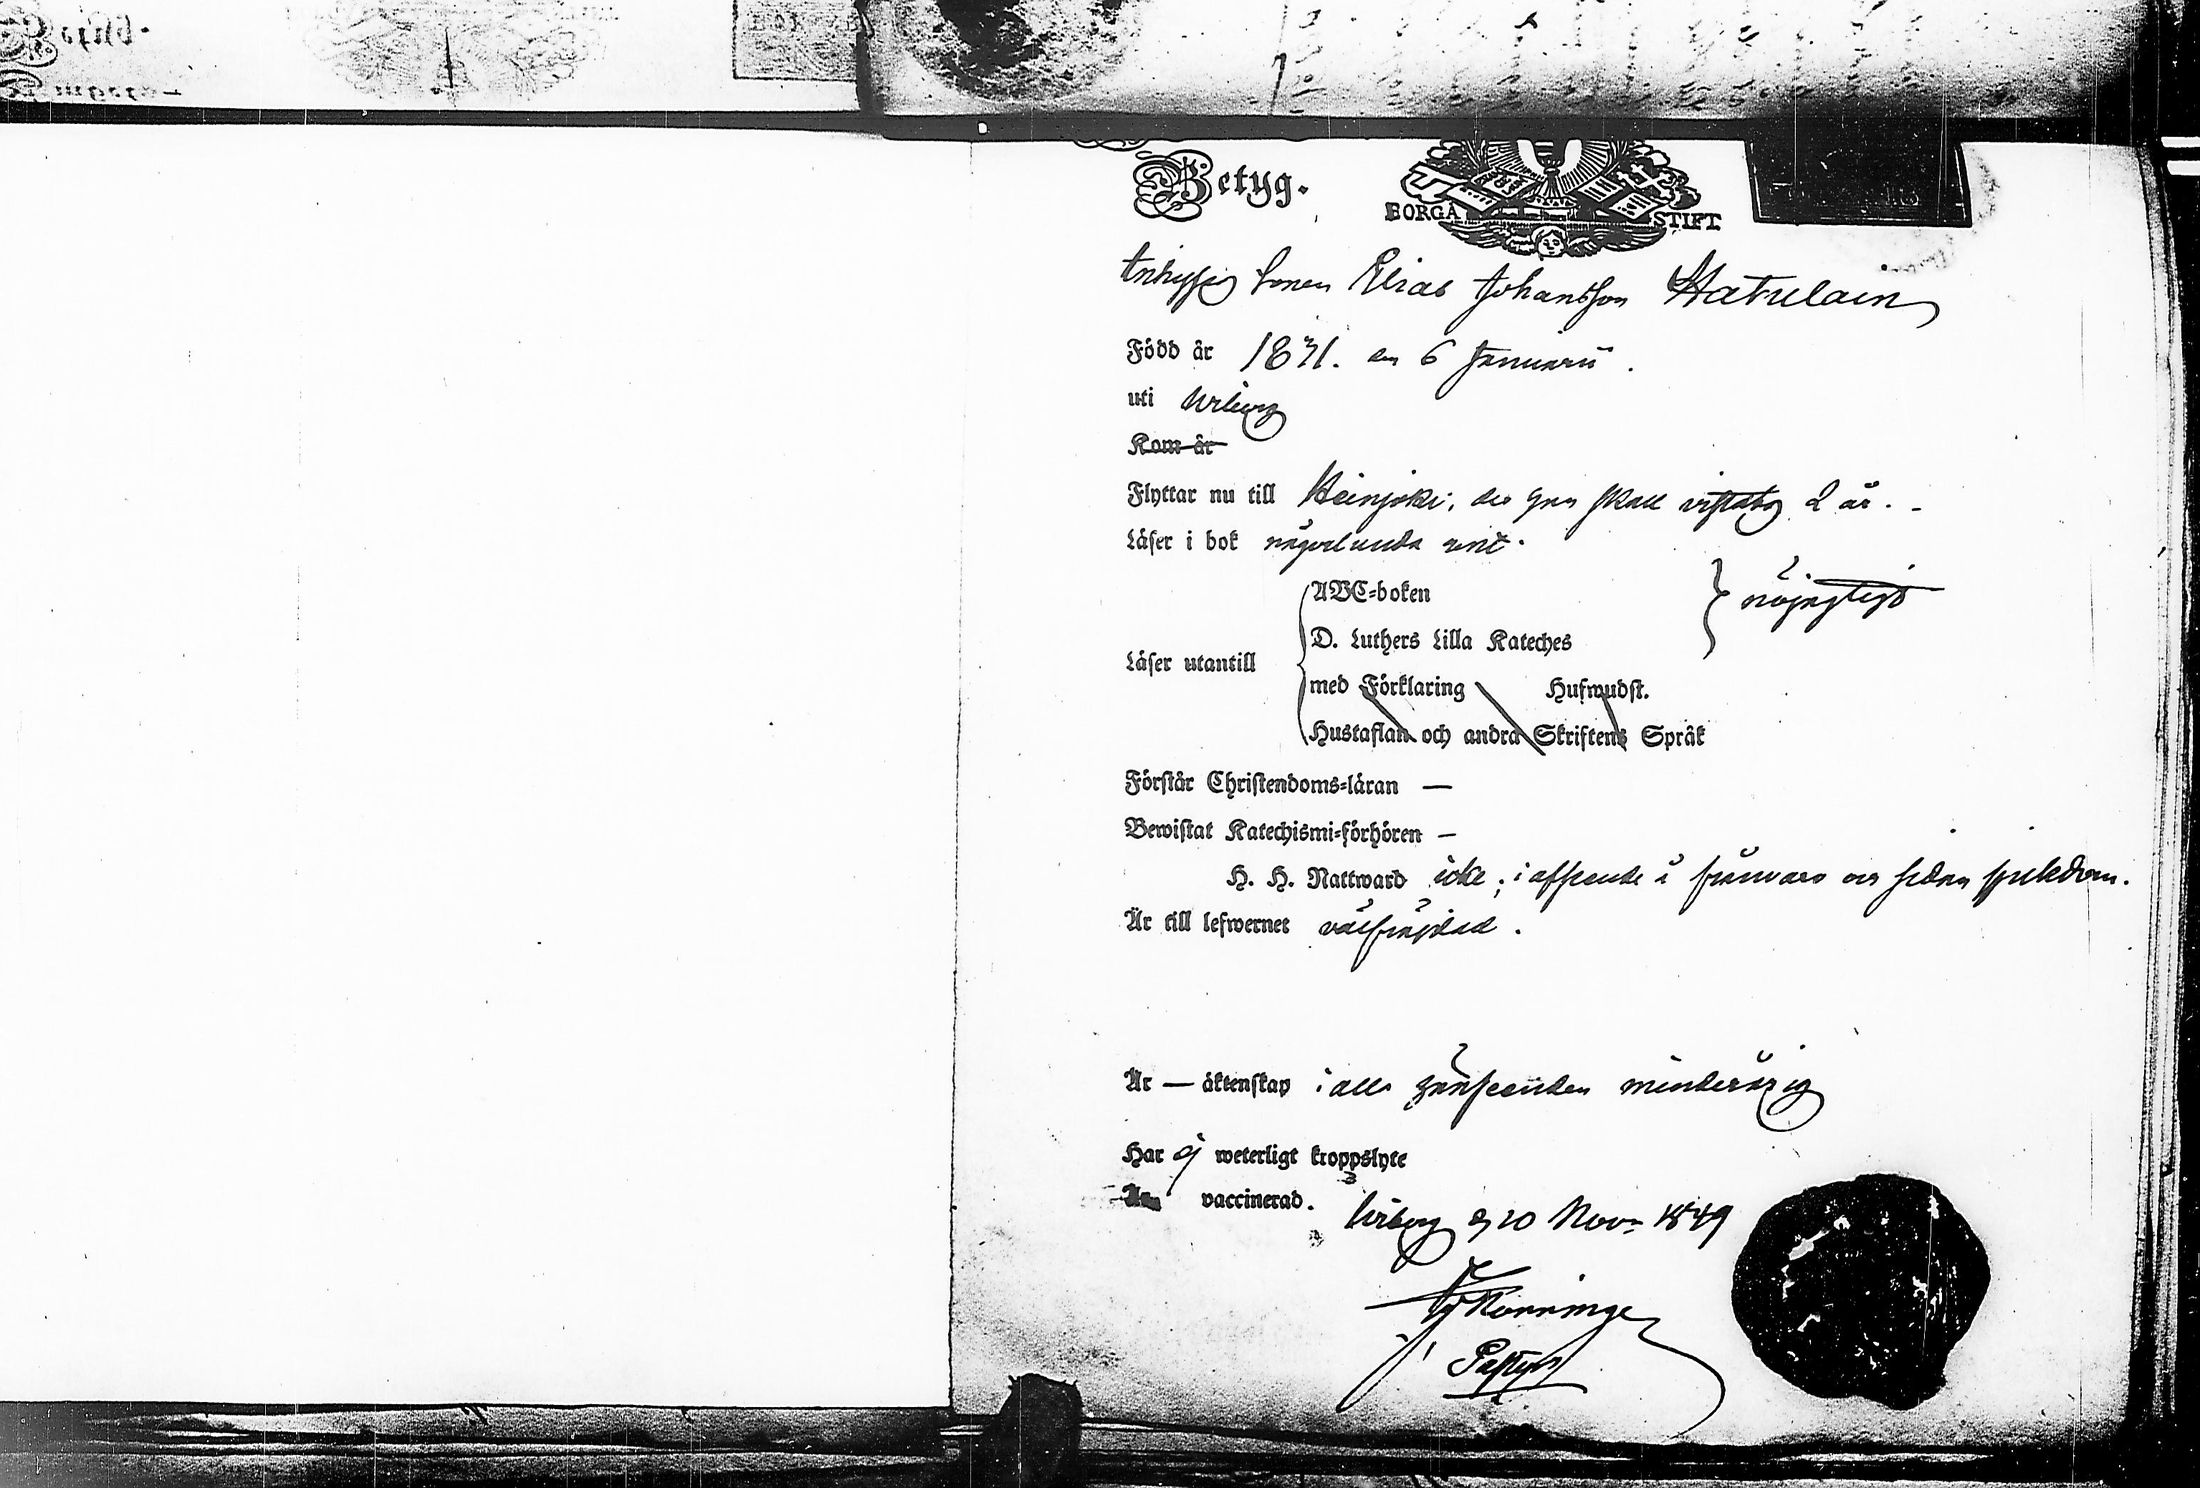 Betyg.
BORGÅ STIFT
Inhyses sonen Elias Johansson Hatulain
Född år 1831. den 6 Januarii.
uti Wiborg
Kom år
Flyttar nu till Heinjoki, der han skall vistats 2 år.
Läser i bok någorlunda rent.
Läser utantill
ABC=boken
D. Luthers Lilla Kateches
nöjagtigt
med Förklaring Hufwudst.
Hustaflan och andra Skriftens Språk
Förstår Christendoms=läran —
Bewistat Katechismi=förhören —
H. H. Nattward icke; i afseende å frånvaro och sedan sjukdom.
Är till lefwernet välfräjdad.
Är — äktenskap i alla hänseenden minderårig
Har ej weterligt kroppslyte
vaccinerad.
Wiborg d 20 Nov. 1849
Pastor